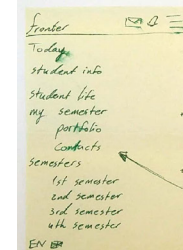 fronter
Today
student info
student life
my semester
portfolio
contacts
semesters
1st semester
2nd semester
3rd semester
4th semester
EN